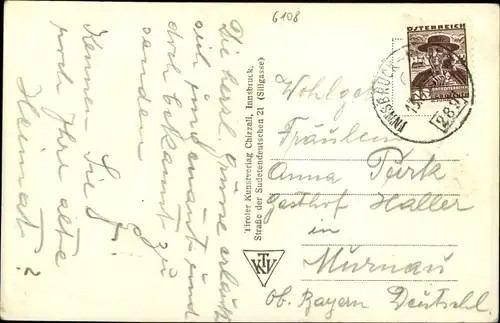 6108
Die herzl. Grüsse erlaubt
sich jemand und
doch bekannt zu
senden
Kennen Sie
noch Ihre alte
Heimat?
Tiroler Kunstverlag Chizzali, Innsbruck,
Straße der Sudetendeutschen 21 (Sillgasse)
KTV
ÖSTERREICH
INNSBRUCK
Wohlgeb.
Fräulein
Anna Türk
Gasthof Haller
in
Murnau
Ob. Bayern Deutschl.